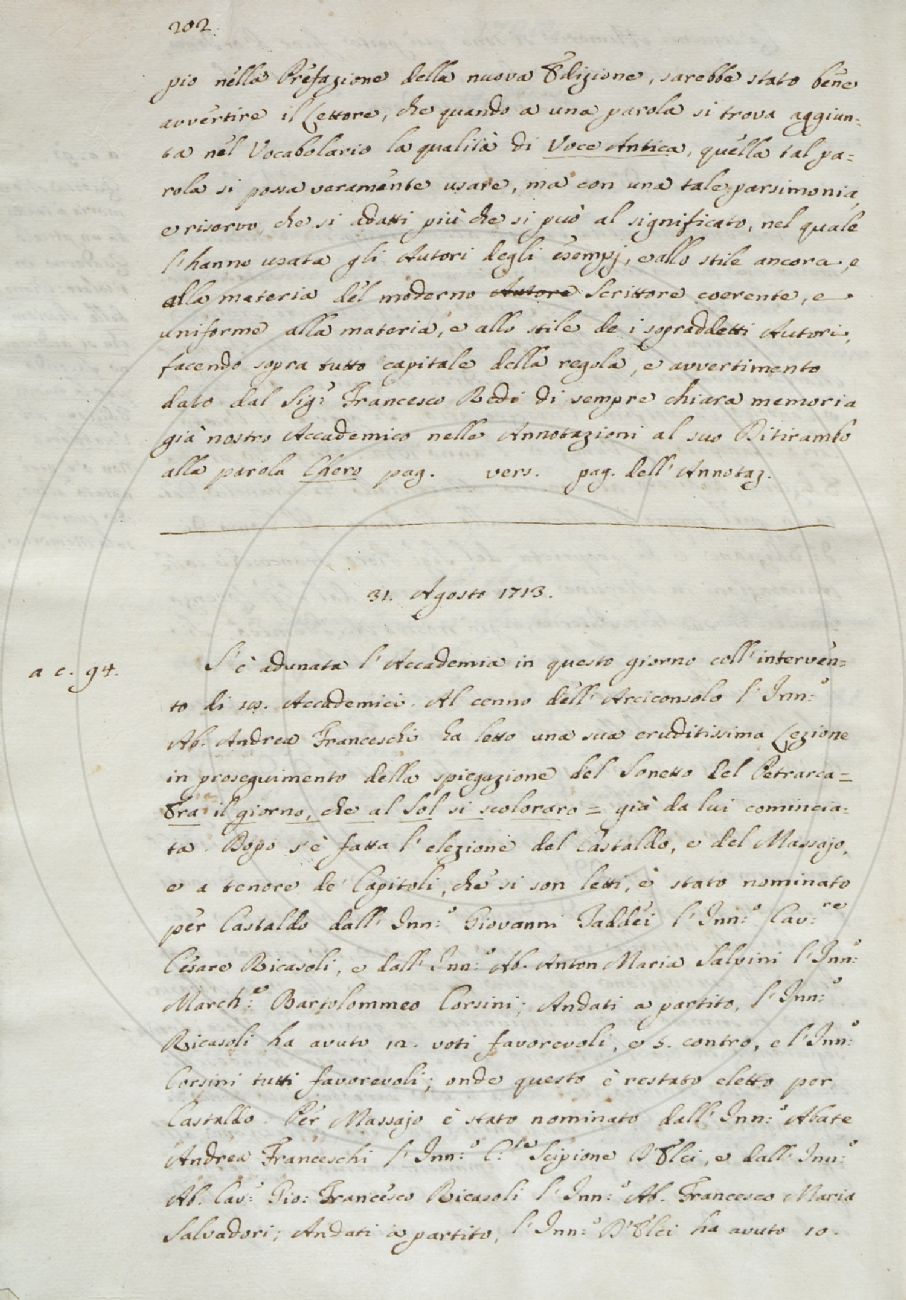 202.
pio nella Prefazione della nuova Edizione, sarebbe stato bene
avvertire il Lettore, che quando a una parola si trova aggiun-
ta nel Vocabolario la qualità di Voce Antica, quella tal pa-
rola si possa veramente usare, ma con una tale parsimonia,
e riservo che si adatti più che si può al significato, nel quale
l'hanno usata gli Autori degli esempj, e allo stile ancora, e
alla materia del moderno Autore Scrittore coerente, e
uniforme alla materia, e allo stile de i sopraddetti Autori,
facendo sopra tutto capitale della regola, e avvertimento
dato dal Sig.r Francesco Redi di sempre chiara memoria
già nostro Accademico nelle Annotazioni al suo Ditirambo
alla parola Chero pag. vers. pag. dell'Annotaz.
31. Agosto 1713.
a c. 94. S'è adunata l'Accademia in questo giorno coll'interven-
to di Accademici. Al cenno dell'Arciconsolo l'Inn:o
Ab. Andrea Franceschi ha letto una sua eruditissima Lezione
in proseguimento della spiegazione del Sonetto del Petrarca =
Era il giorno, che al Sol si scoloraro = già da lui comincia-
ta. Dopo s'è fatta l'elezione del Castaldo, e del Massajo,
e a tenore de' Capitoli, che si son letti, è stato nominato
per Castaldo dall'Inn:o Giovanni Taddei l'Inn:o Cav:re
Cesare Ricasoli, e dall'Inn:o Ab. Anton Maria Salvini l'Inn:o
March:e Bartolommeo Corsini; Andati a partito, l'Inn:o
Ricasoli ha avuto 12. voti favorevoli, e 5. contro, e l'Inn:o
Corsini tutti favorevoli; onde questo è restato eletto per
Castaldo. Per Massajo è stato nominato dall'Inn:o Abate
Andrea Franceschi l'Inn:o C:te Scipione D'Elci, e dall'Inn:o
Ab. Cav:e Gio: Francesco Ricasoli l'Inn:o Ab. Francesco Maria
Salvadori; Andati a partito, l'Inn:o D'Elci ha avuto 10.